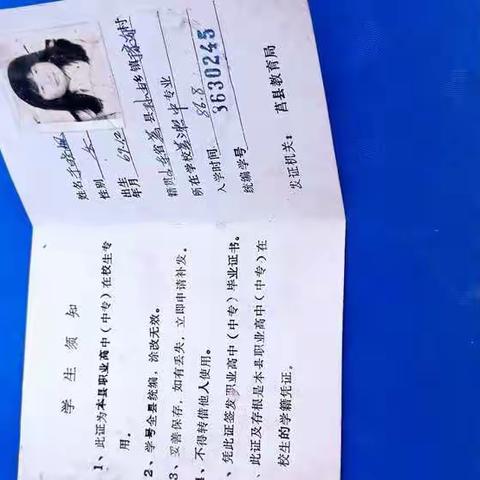 学生须知
1、此证为本县职业高中(中专)在校生专
用。
2、学号全县统编，涂改无效。
3、妥善保存，如有丢失，立即申请补发。
、不得转借他人使用。
、凭此证签发职业高中(中专)毕业证书。
、此证及存根是本县职业高中(中专)在
校生的学籍凭证。
姓名
性别 女
出生年月 69.12
籍贯 省莒县 乡镇 村
所在学校 中专业
入学时间 86.8
统编学号 3630245
发证机关：莒县教育局